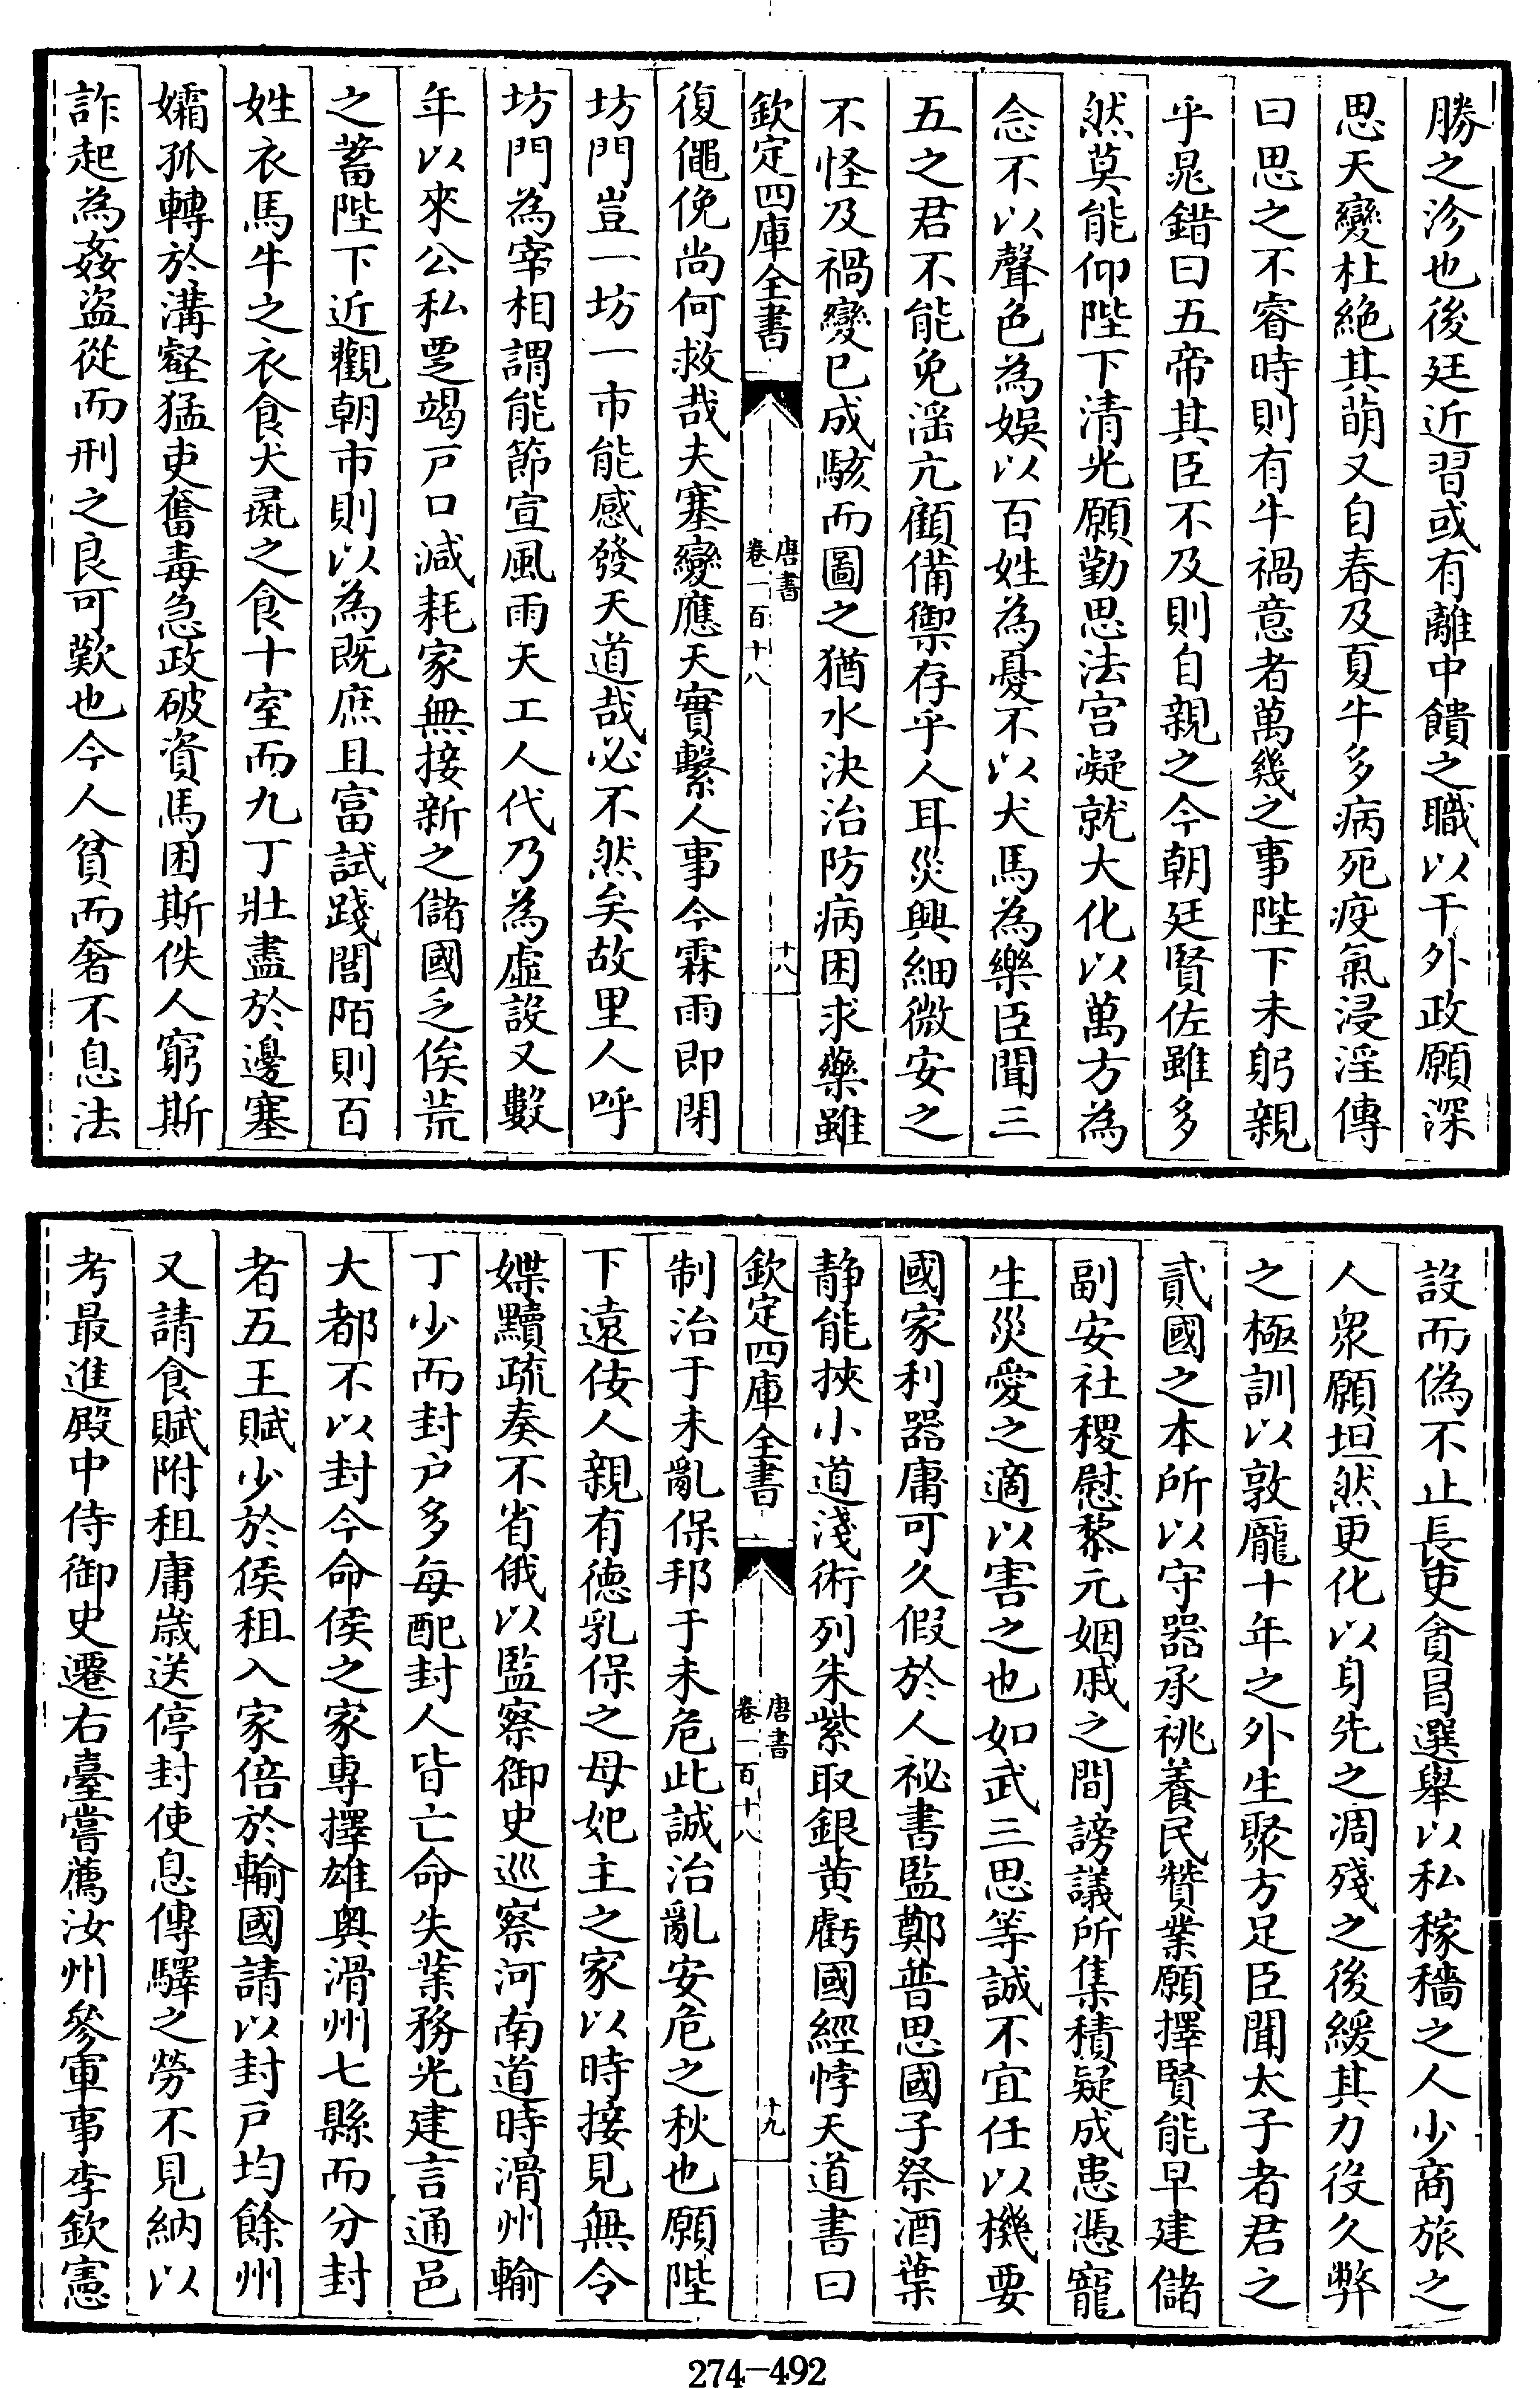 勝之沴也後廷近習或有離中饋之職以干外政願深
思天變杜絶其萌又自春及夏牛多病死疫氣浸淫傳
曰思之不睿時則有牛禍意者萬幾之事陛下未躬親
乎晁錯曰五帝其臣不及則自親之今朝廷賢佐雖多
然莫能仰陛下清光願勤思法宫凝就大化以萬方為
念不以聲色為娛以百姓為憂不以犬馬為樂臣聞三
五之君不能免滛亢顧備禦存乎人耳災興細微安之
不怪及禍變已成駭而圖之猶水決治防病困求藥雖
欽定四庫全書
唐書
卷一百十八
十八
復僶俛尚何救哉夫塞變應天實繫人事今霖雨即閉
坊門豈一坊一市能感發天道哉必不然矣故里人呼
坊門為宰相謂能節宣風雨天工人代乃為虛設又數
年以來公私乏竭戸口減耗家無接新之儲國乏俟荒
之蓄陛下近觀朝市則以為既庶且富試踐閭陌則百
姓衣馬牛之衣食犬彘之食十室而九丁壯盡於邊塞
孀孤轉於溝壑猛吏奮毒急政破資馬困斯佚人窮斯
詐起為姦盗從而刑之良可歎也今人貧而奢不息法
設而偽不止長吏貪冒選舉以私稼穡之人少商旅之
人衆願坦然更化以身先之凋殘之後緩其力役久弊
之極訓以敦龎十年之外生聚方足臣聞太子者君之
貳國之本所以守器承祧養民贊業願擇賢能早建儲
副安社稷慰黎元姻戚之間謗議所集積疑成患憑寵
生災愛之適以害之也如武三思等誠不宜任以機要
國家利器庸可久假於人祕書監鄭普思國子祭酒葉
静能挾小道淺術列朱紫取銀黄虧國經悖天道書曰
欽定四庫全書
唐書
卷一百十八
十九
制治于未亂保邦于未危此誠治亂安危之秋也願陛
下遠佞人親有德乳保之母妃主之家以時接見無令
媟黷疏奏不省俄以監察御史巡察河南道時滑州輸
丁少而封戸多每配封人皆亡命失業務光建言通邑
大都不以封今命侯之家專擇雄奥滑州七縣而分封
者五王賦少於侯租入家倍於輸國請以封戸均餘州
又請食賦附租庸歳送停封使息傳驛之勞不見納以
考最進殿中侍御史遷右臺嘗薦汝州參軍事李欽憲
274-492